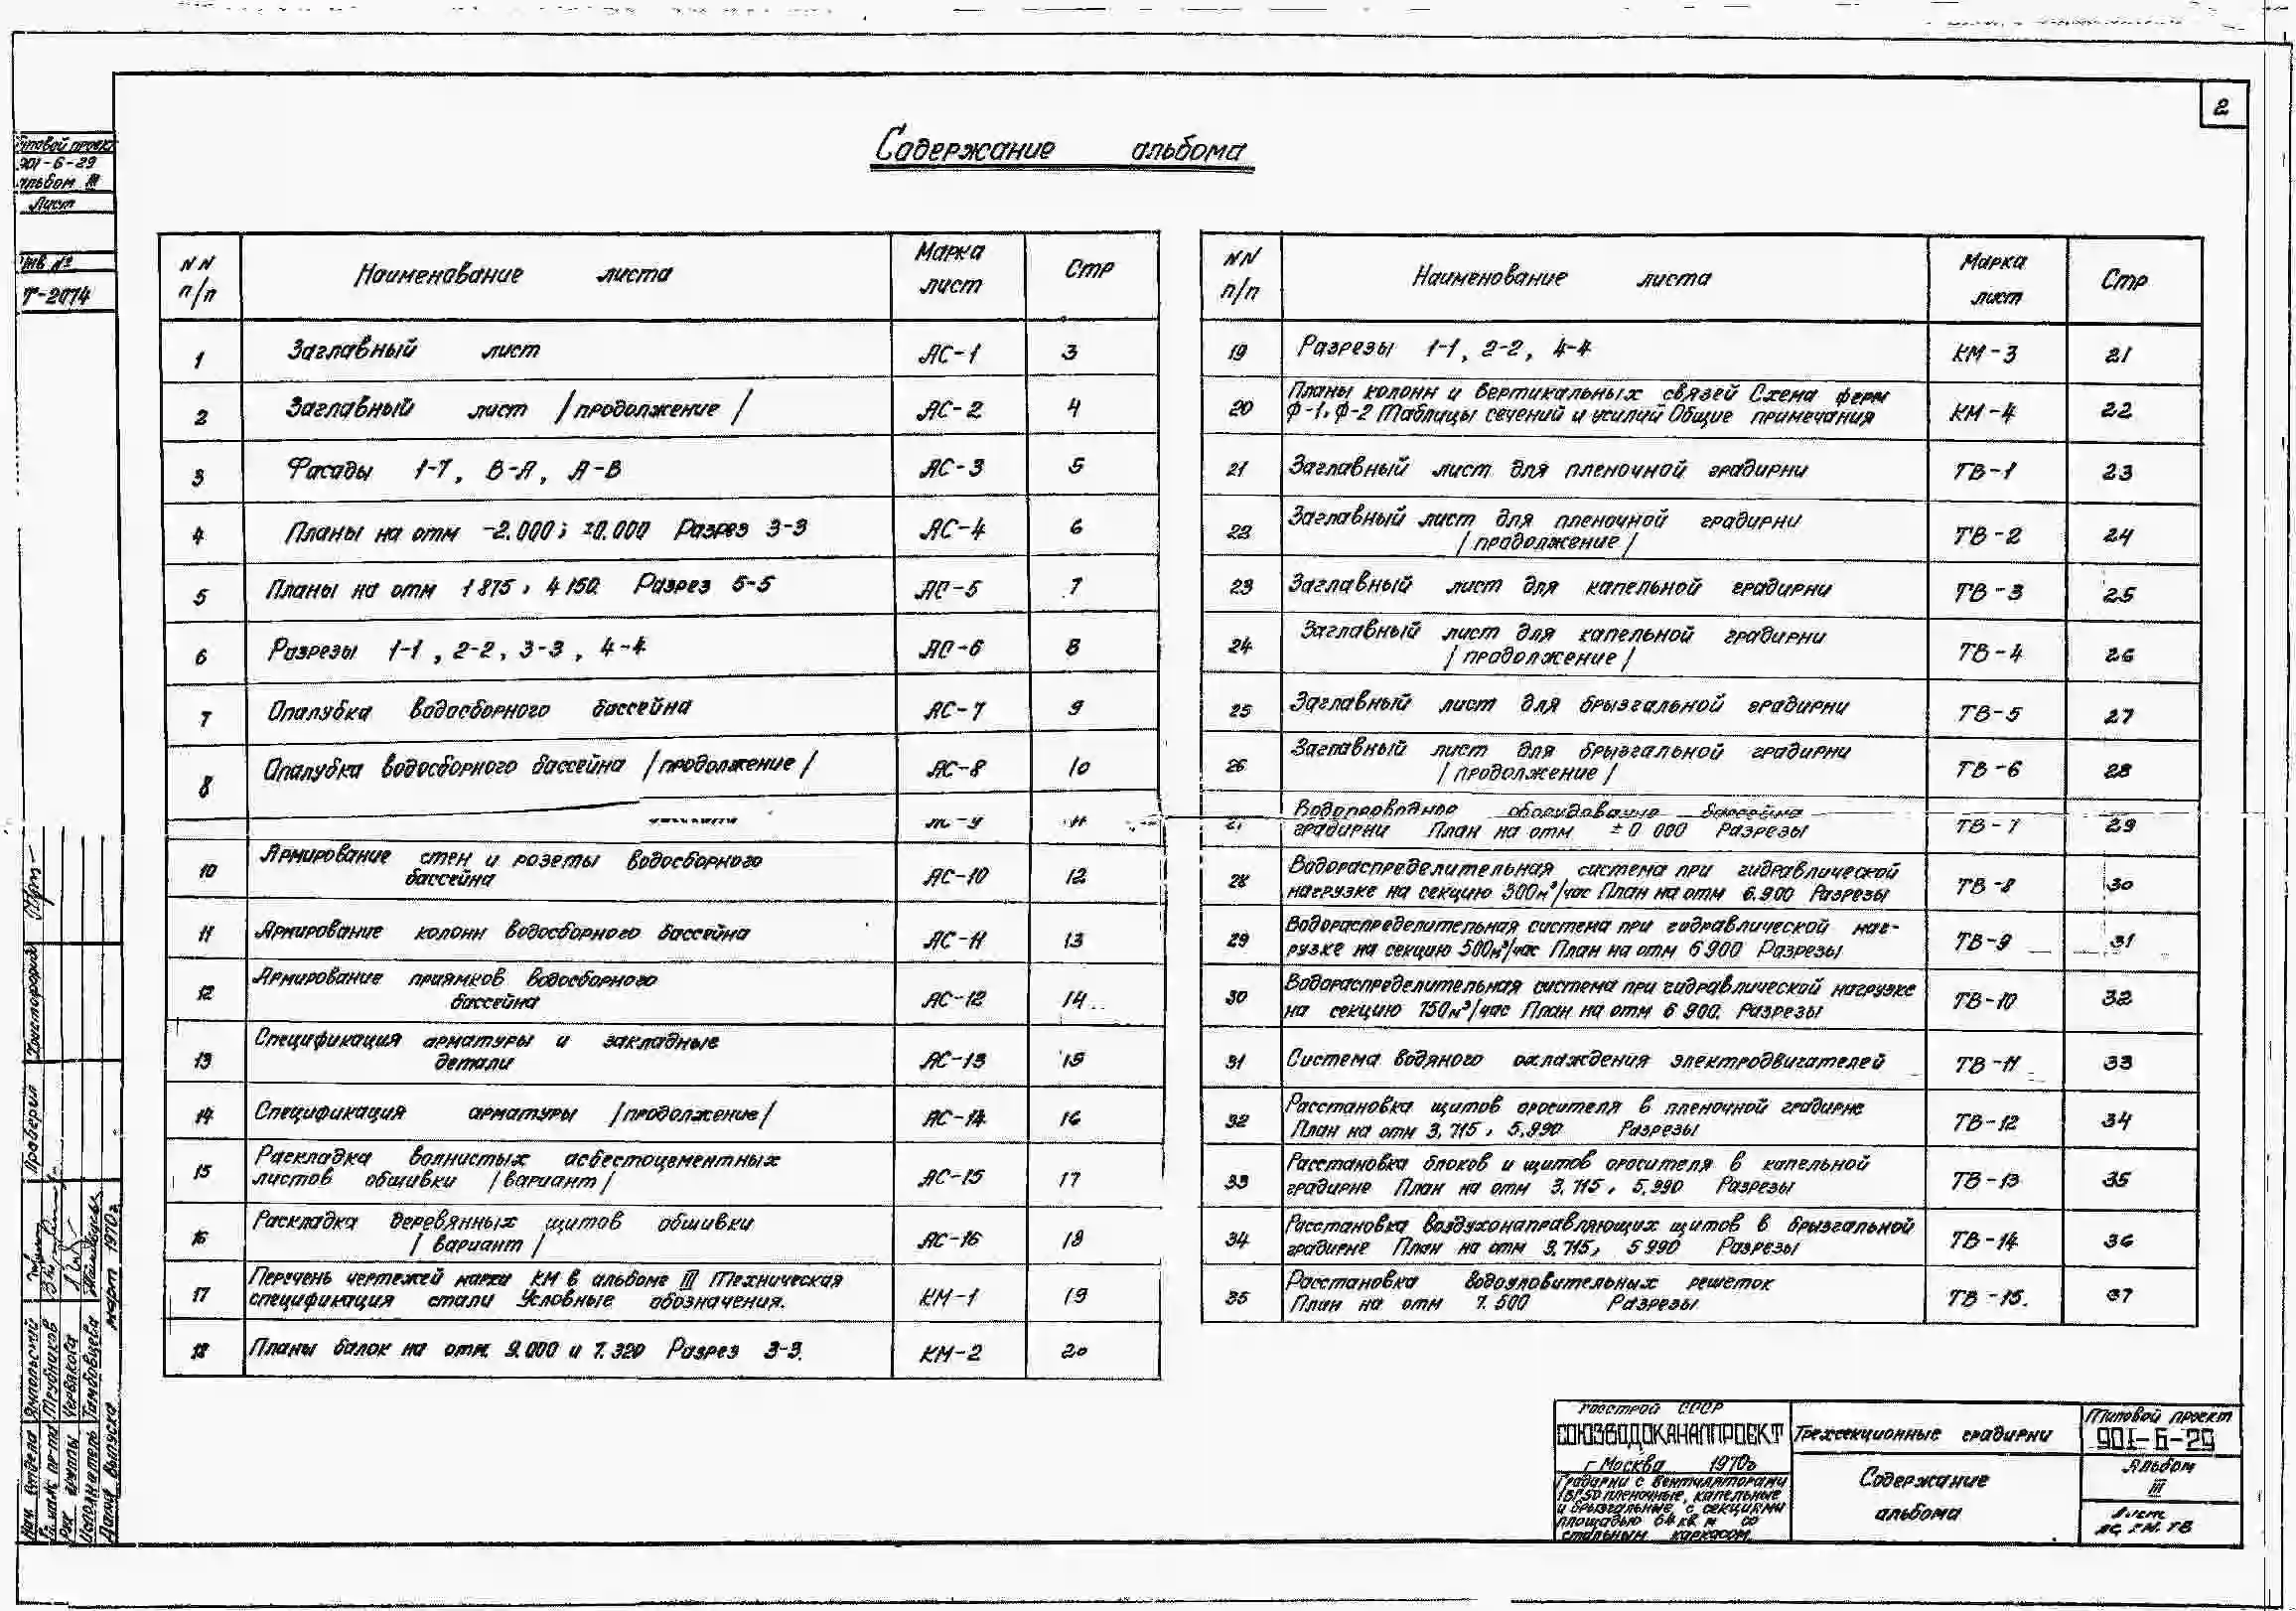 2
Содержание альбома
Типовой проект
901-6-29
альбом III
Лист
Инв №
Т-2074
NN п/п Наименование листа Марка лист Стр
1 Заглавный лист АС-1 3
2 Заглавный лист /продолжение/ АС-2 4
3 Фасады 1-7, В-А, А-В АС-3 5
4 Планы на отм -2.000; ±0.000 Разрез 3-3 АС-4 6
5 Планы на отм 1 875, 4 150. Разрез 5-5 АС-5 7
6 Разрезы 1-1, 2-2, 3-3, 4-4 АС-6 8
7 Опалубка водосборного бассейна АС-7 9
8 Опалубка водосборного бассейна /продолжение/ АС-8 10
АС-9 11
10 Армирование стен и розеты водосборного
бассейна АС-10 12
11 Армирование колонн водосборного бассейна АС-11 13
12 Армирование приямков водосборного
бассейна АС-12 14
13 Спецификация арматуры и закладные
детали АС-13 15
14 Спецификация арматуры /продолжение/ АС-14 16
15 Раскладка волнистых асбестоцементных
листов обшивки /вариант/ АС-15 17
16 Раскладка деревянных щитов обшивки
/вариант/ АС-16 18
17 Перечень чертежей марки КМ в альбоме III Техническая
спецификация стали Условные обозначения. КМ-1 19
18 Планы балок на отм. 9.000 и 7.320 Разрез 3-3. КМ-2 20
NN п/п Наименование листа Марка лист Стр
19 Разрезы 1-1, 2-2, 4-4 КМ-3 21
20 Планы колонн и вертикальных связей Схема ферм
Ф-1, Ф-2 Таблицы сечений и усилий Общие примечания КМ-4 22
21 Заглавный лист для пленочной градирни ТВ-1 23
22 Заглавный лист для пленочной градирни
/продолжение/ ТВ-2 24
23 Заглавный лист для капельной градирни ТВ-3 25
24 Заглавный лист для капельной градирни
/продолжение/ ТВ-4 26
25 Заглавный лист для брызгальной градирни ТВ-5 27
26 Заглавный лист для брызгальной градирни
/продолжение/ ТВ-6 28
27 Водопроводное оборудование бассейна
градирни План на отм ±0 000 Разрезы ТВ-7 29
28 Водораспределительная система при гидравлической
нагрузке на секцию 300м³/час План на отм 6.900 Разрезы ТВ-8 30
29 Водораспределительная система при гидравлической наг-
рузке на секцию 500м³/час План на отм 6 900 Разрезы ТВ-9 31
30 Водораспределительная система при гидравлической нагрузке
на секцию 750м³/час План на отм 6 900. Разрезы ТВ-10 32
31 Система водяного охлаждения электродвигателей ТВ-11 33
32 Расстановка щитов оросителя в пленочной градирне
План на отм 3.715, 5.990 Разрезы ТВ-12 34
33 Расстановка блоков и щитов оросителя в капельной
градирне План на отм 3.715, 5.990 Разрезы ТВ-13 35
34 Расстановка воздухонаправляющих щитов в брызгальной
градирне План на отм 3.715, 5 990 Разрезы ТВ-14 36
35 Расстановка водоуловительных решеток
План на отм 7.500 Разрезы ТВ-15. 37
Госстрой СССР
СОЮЗВОДОКАНАЛПРОЕКТ
г Москва 1970г
Градирни с вентиляторами
1ВГ50 пленочные, капельные
и брызгальные, с секциями
площадью 64 кв м со
стальным каркасом.
Трехсекционные градирни
Содержание
альбома
Типовой проект
901-6-29
Альбом
III
Лист
АС, КМ, ТВ
Нач отдела Ямпольский
Гл инж пр-та Трубников
Рук группы Червякова
Исполнитель Тамбовцева
Дата выпуска март 1970г.
Проверил